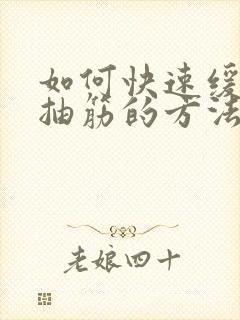 如何快速缓
抽筋的方法
老娘四十